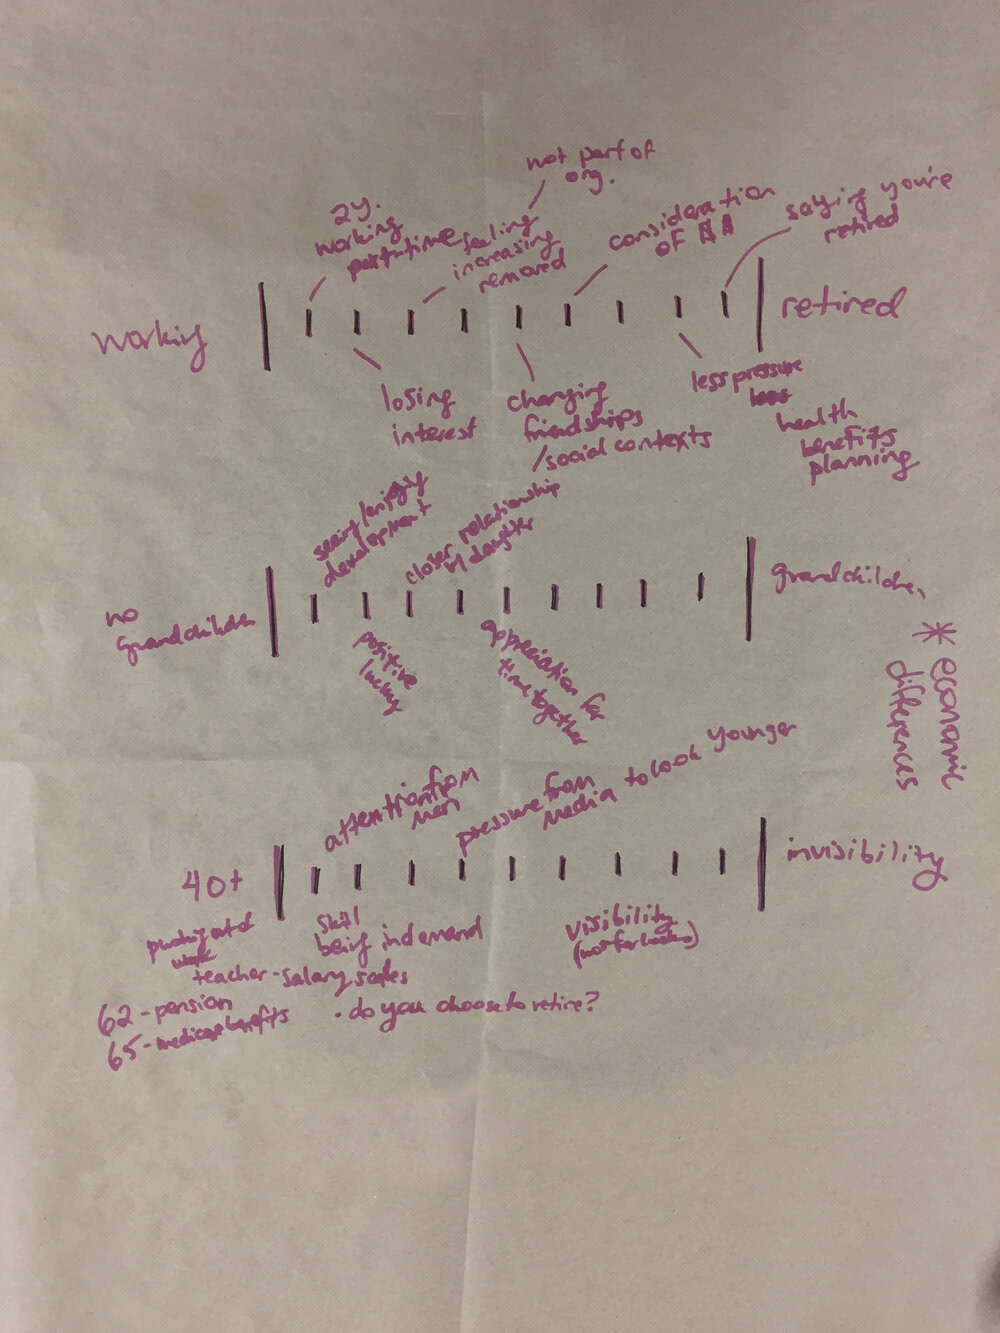 not part of
org.
2y.
working
part-time
feeling
increasing
removed
consideration
of
saying you're
retired
working
retired
losing
interest
changing
friendships
/social contexts
less pressure
health
benefits
planning
seeing/enjoying
development
closer relationship
w/ daughter
no
grandchildren
grandchildren
positive
appreciation for
time together
* economic
differences
attention from
men
pressure from
media to look younger
40+
invisibility
skill
being in demand
visibility
(not for looks)
teacher - salary scales
62 - pension
65 - medicare benefits
. do you choose to retire?